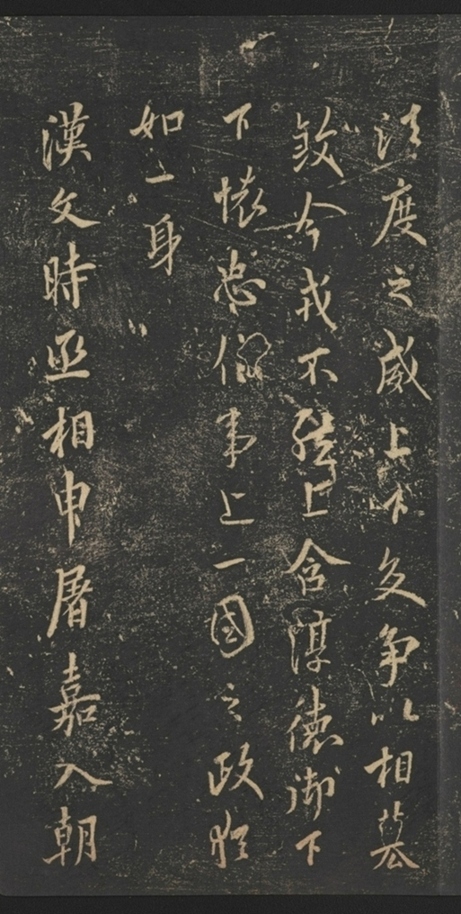 法度之威上下交争以相篡
今戎不然上含淳德御下
下懷忠信事上一國之政猶
如一身
漢文時丞相申屠嘉入朝